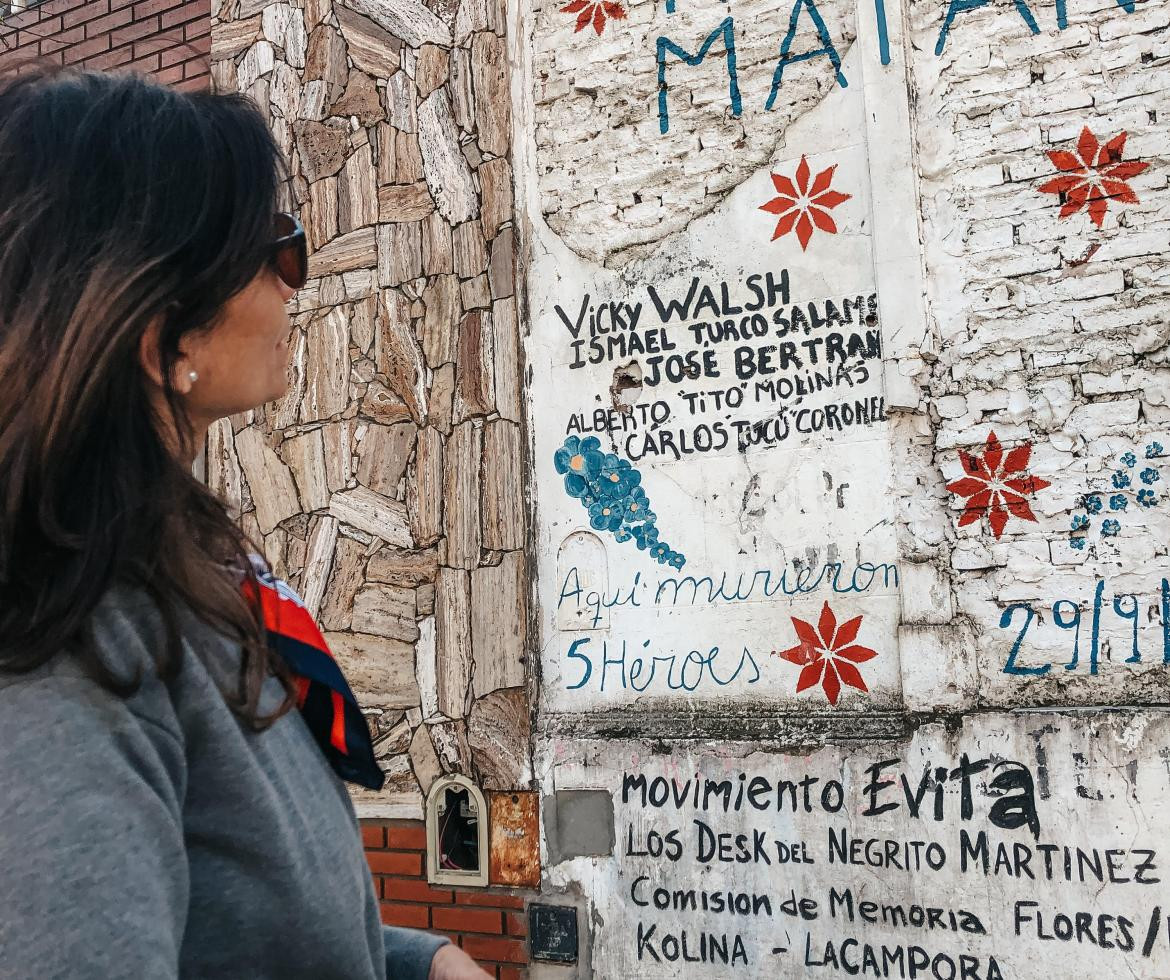 MATAN
VICKY WALSH
ISMAEL TURCO SALAME
JOSE BERTRAN
ALBERTO "TITO" MOLINAS
CARLOS TUCU "CORONEL
Aquí murieron
5 Héroes
29/9/
movimiento EviTa
LOS DESK DEL NEGRITO MARTINEZ
Comision de Memoria FLORES/
KOLINA - LACAMPORA